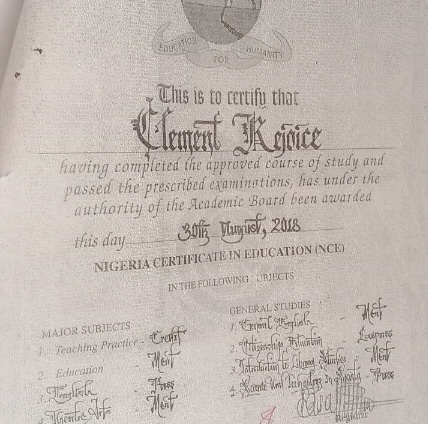 EDUCATION FOR HUMANITY
This is to certify that
Clement Rejoice
having completed the approved course of study and
passed the prescribed examinations, has under the
authority of the Academic Board been awarded
this day 30th August, 2018
NIGERIA CERTIFICATE IN EDUCATION (NCE)
IN THE FOLLOWING SUBJECTS
MAJOR SUBJECTS
1. Teaching Practice - Credit
2. Education - Merit
3. English - Pass
4. Theatre Arts - Merit
GENERAL STUDIES
1. General English - Merit
2. Citizenship Education
3. Introduction to Library Studies - Merit
4. Science and Technology in Society - Pass